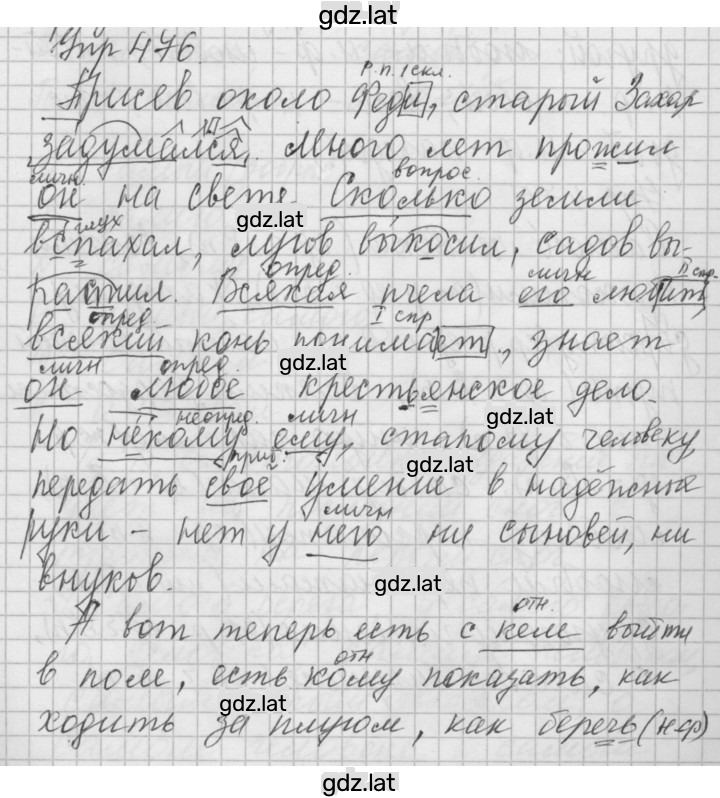 gdz.lat
Упр 476.
Р.п. 1 скл.
Присев около Феди, старый Захар
задумался. Много лет прожил
личн. вопрос.
он на свете. Сколько земли
глух gdz.lat
вспахал, лугов выкосил, садов вы-
опред. личн II спр.
растил. Всякая пчела его любит,
опред. I спр
всякий конь понимает, знает
gdz.lat
личн опред.
он любое крестьянское дело.
неопред. личн gdz.lat
Но некому ему, старому человеку
прит. gdz.lat
передать своё умение в надёжные
личн
руки – нет у него ни сыновей, ни
внуков. gdz.lat
отн.
А вот теперь есть с кем выйти
отн
в поле, есть кому показать, как
gdz.lat
ходить за плугом, как беречь (н.ф)
gdz.lat